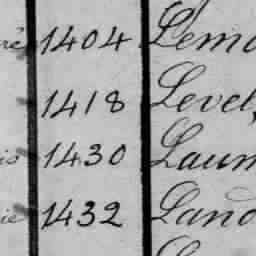 né 1404 Lemo
1418 Level,
is 1430 Laum
ie 1432 Land